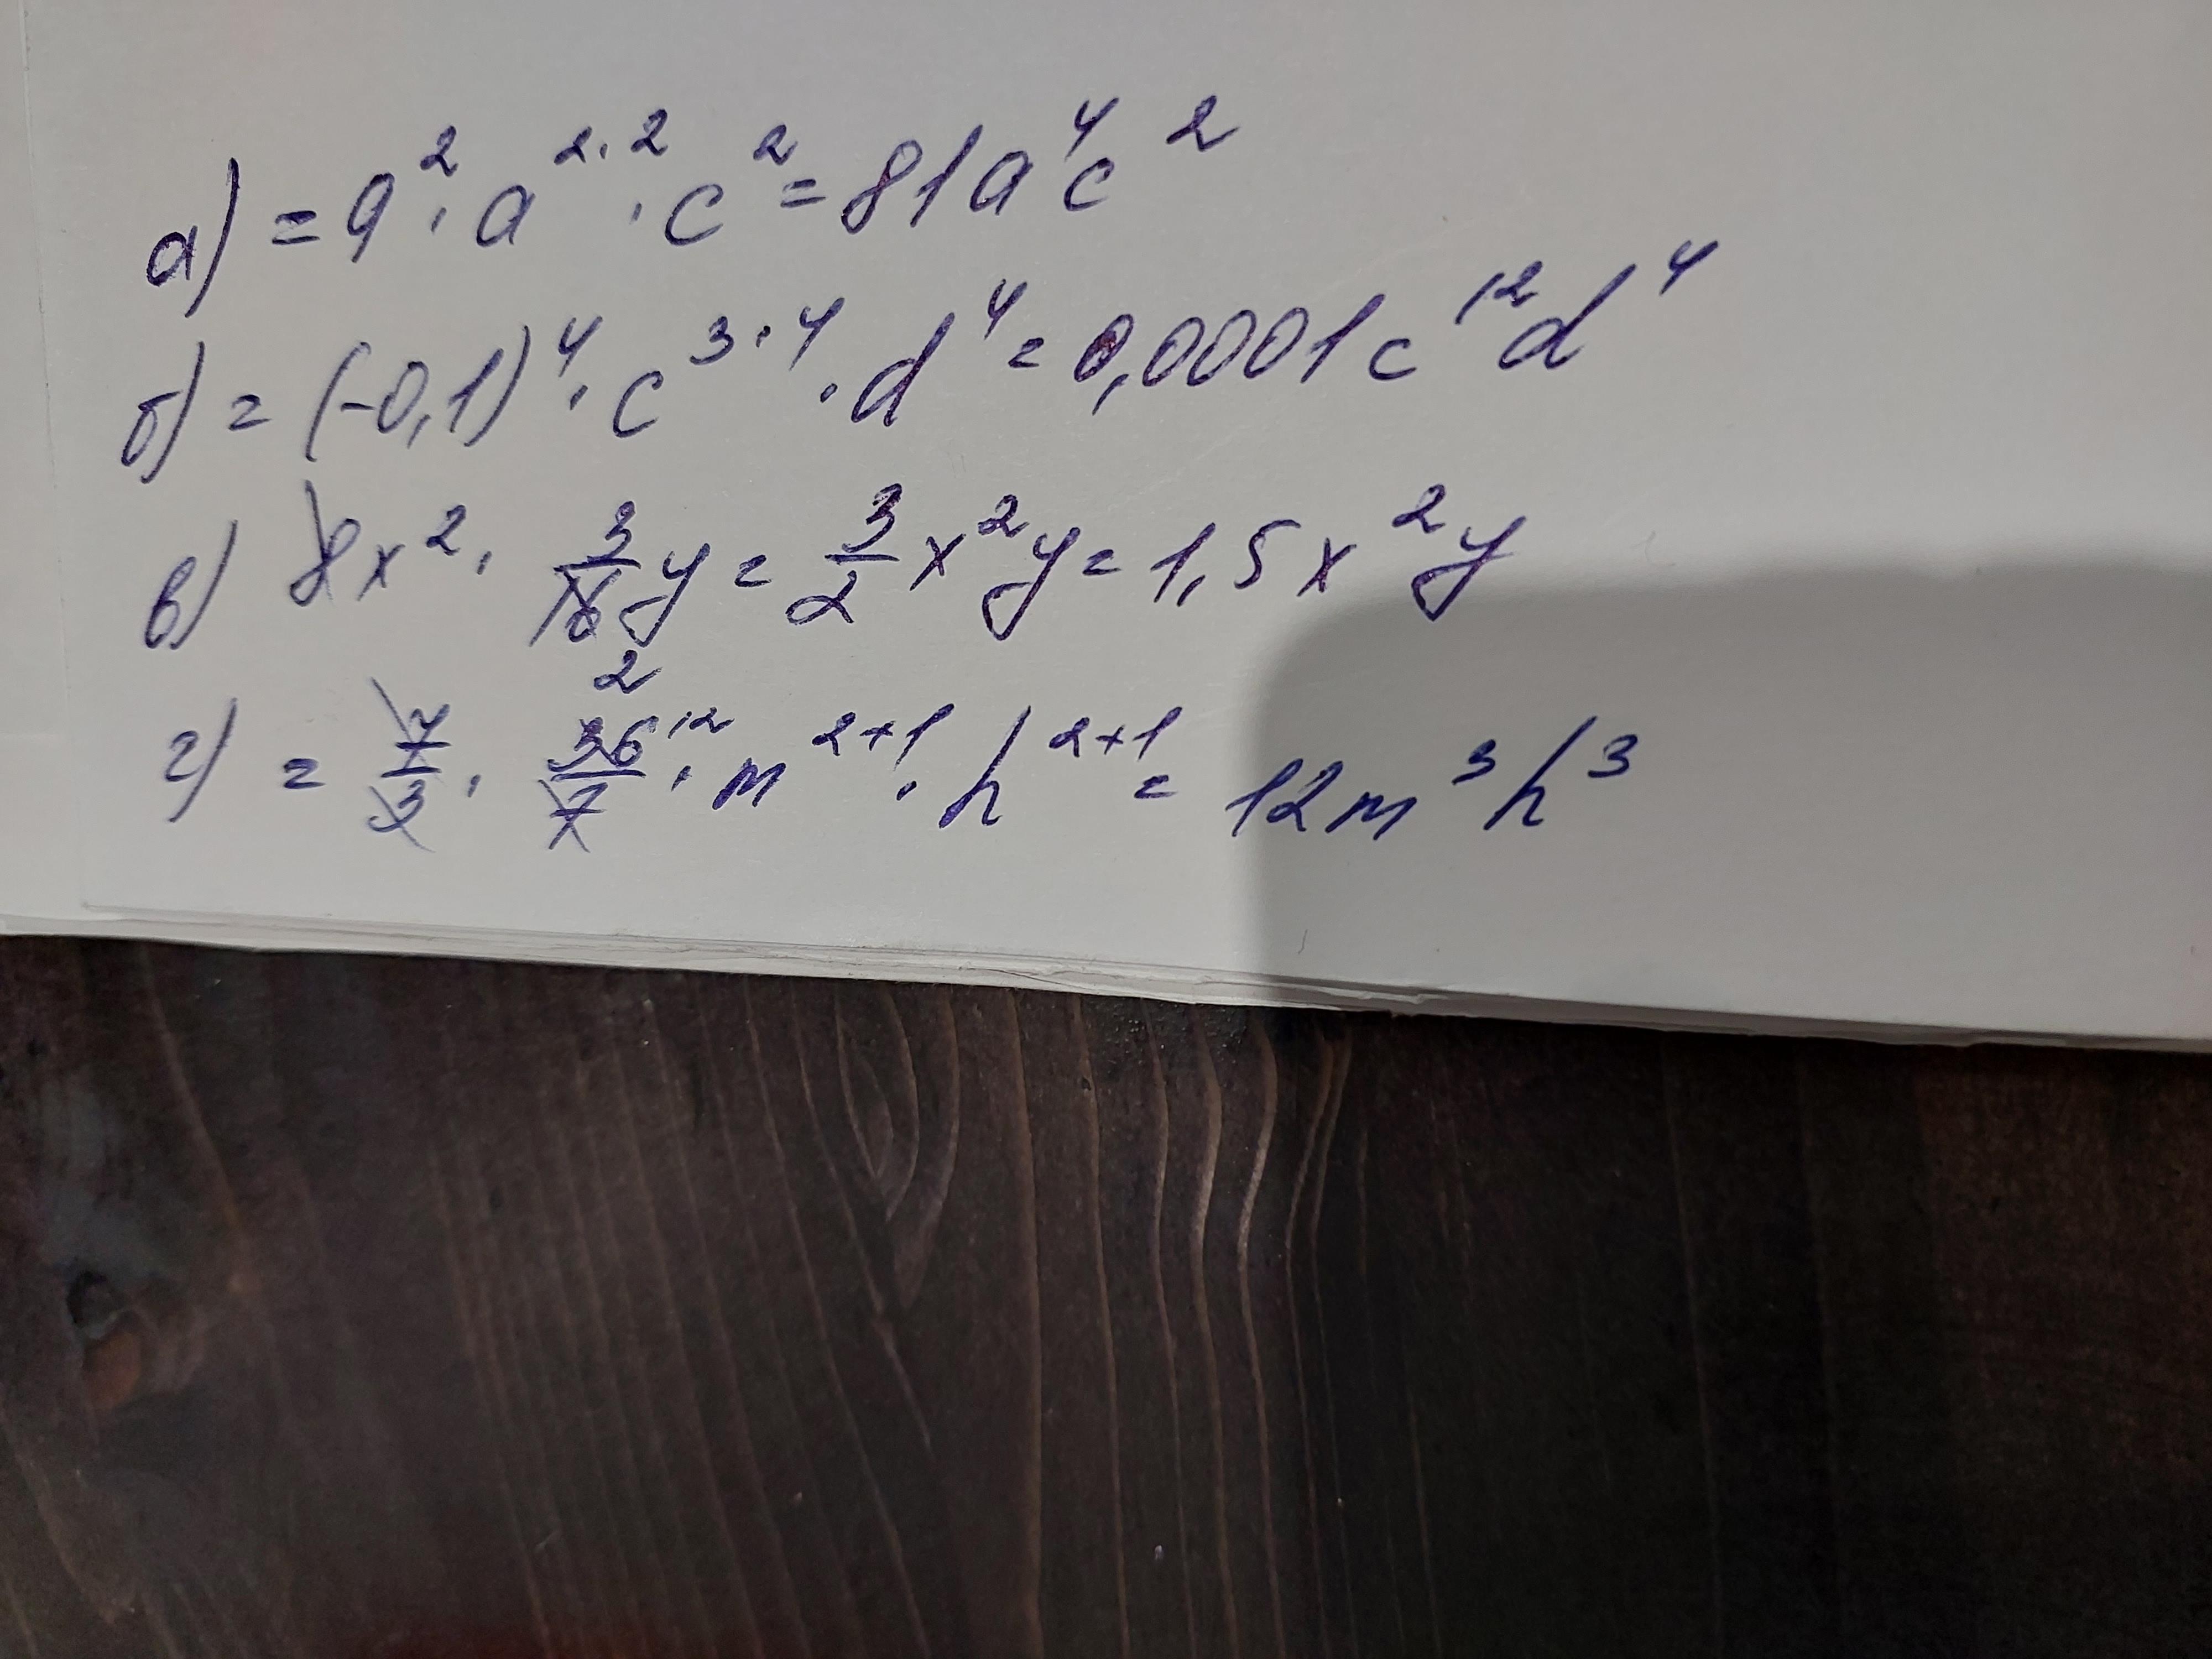 а) = 9² · a²·² · c² = 81a⁴c²
б) = (-0,1)⁴ · c³·⁴ · d⁴ = 0,0001c¹²d⁴
в) 8x² · 3/16 2 y = 3/2 x²y = 1,5x²y
г) = 7/3 · 36/7 12 · m²⁺¹ · h²⁺¹ = 12m³h³